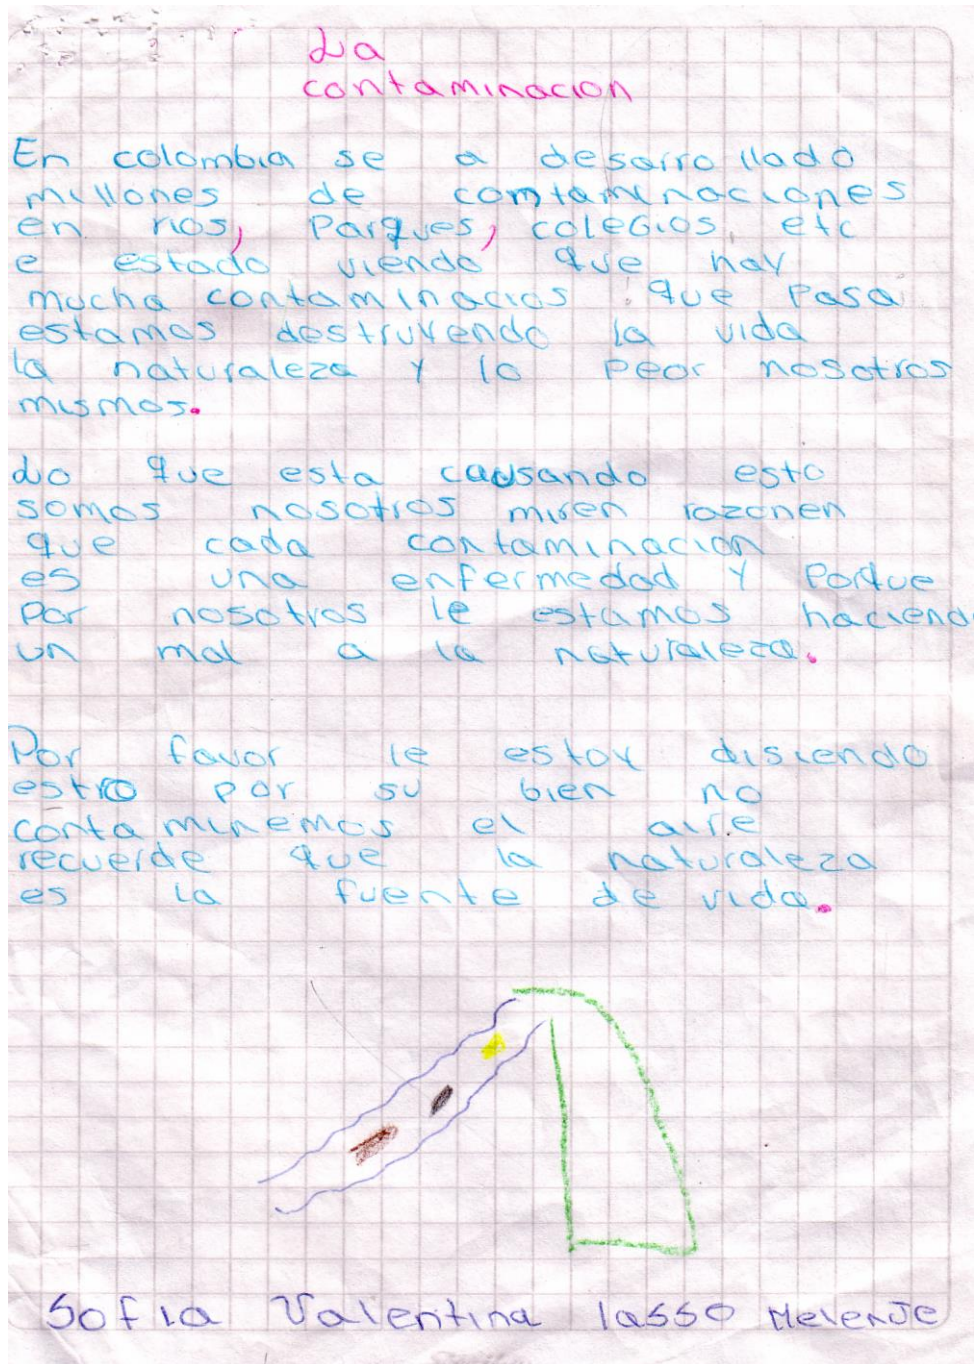 La
contaminacion
En colombia se a desarro llado
millones de comtaminaciones
en rios, Parques, coleGios, etc
e estado viendo que hay
mucha contaminacios que Pasa
estamos destruyendo la vida
la naturaleza y lo peor nosotros
mismos.
Lo que esta causando esto
somos nosotros miren razonen
que cada contaminacion
es una enfermedad y Porque
por nosotros le estamos haciendo
un mal a la naturaleza.
Por favor le estoy disiendo
estro por su bien no
conta minemos el aire
recuerde que la naturaleza
es la fuente de vida.
Sofia Valentina lasso MelenJe